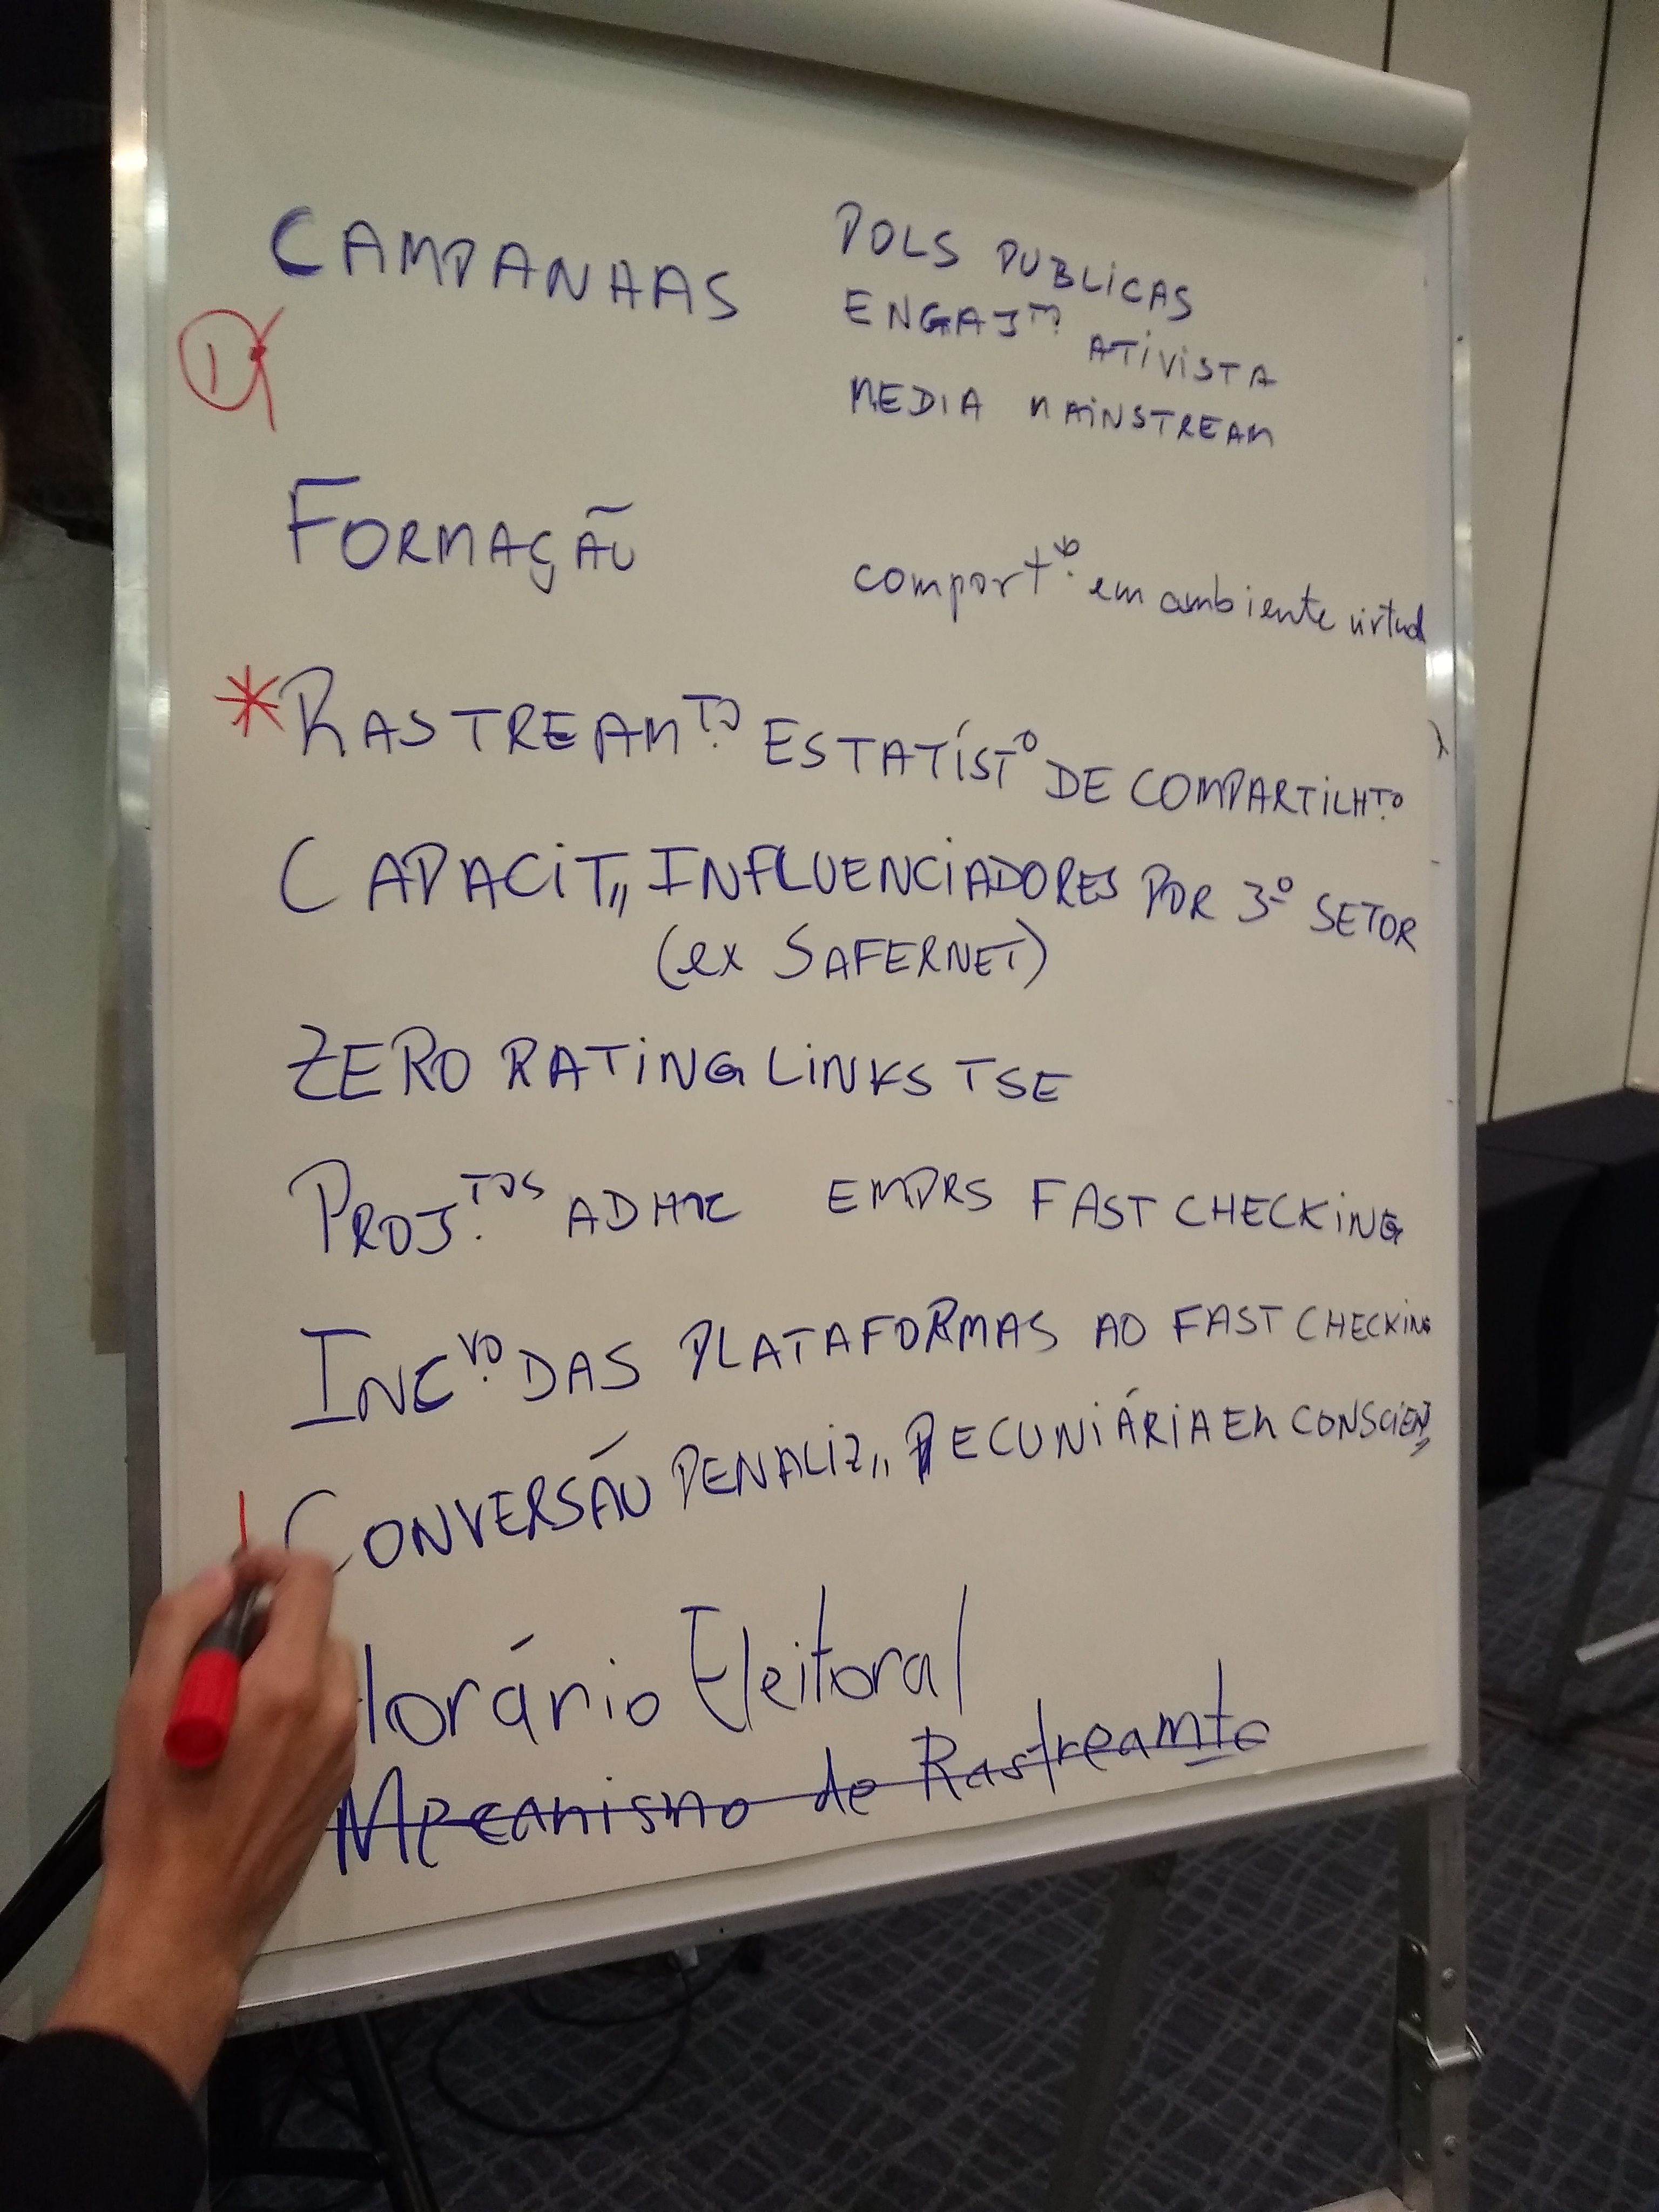 CAMPANHAS
POLS PUBLICAS
ENGAJTO ATIVISTA
MEDIA MAINSTREAM
1
FORMAÇÃO
comportto em ambiente virtual
*RASTREAMTO ESTATÍSTO DE COMPARTILHTO
CAPACIT,, INFLUENCIADORES POR 3º SETOR
(ex SAFERNET)
ZERO RATING LINKS TSE
PROJ.TOS AD HOC EMPRS FAST CHECKING
INCVO DAS PLATAFORMAS AO FAST CHECKING
CONVERSÃO PENALIZ,, PECUNIÁRIA EM CONSCIEN,,
Horário Eleitoral
Mecanismo de Rastreamto